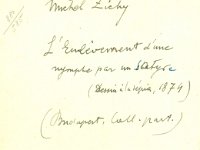 Michel Zichy
L'Enlèvement d'une
nymphe par un Satyre
(Dessin à la sépia, 1874)
(Budapest. Coll. part.)